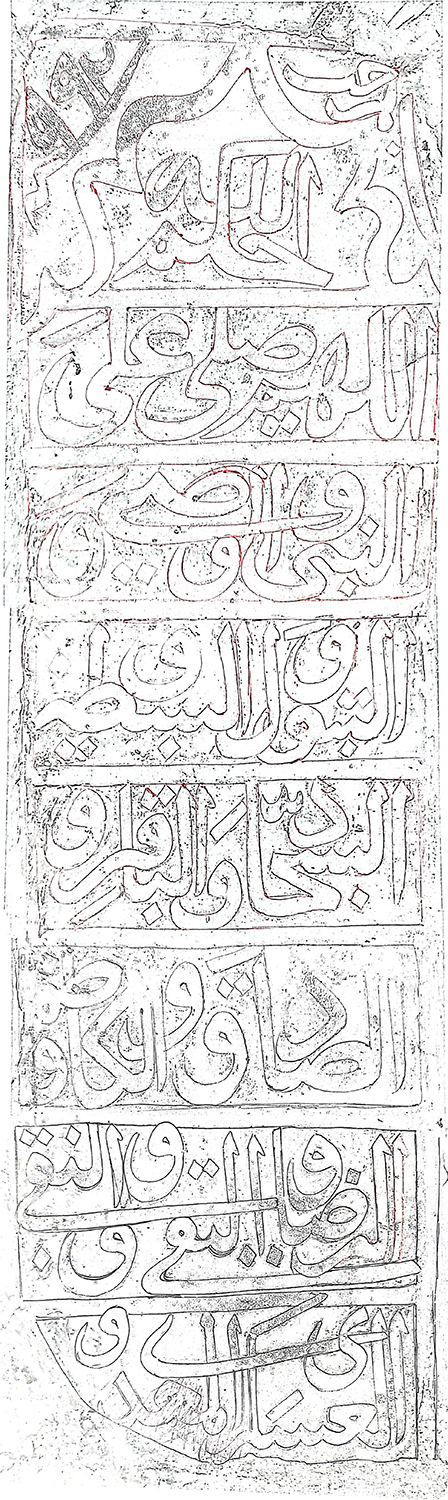 الحكم لله
اللهم صلى على
النبى و الوصى و
البتول و السبطين و
السجاد و الباقر و
الصادق و الكاظم و
الرضا و التقى و النقى و
العسكرى و المهدى